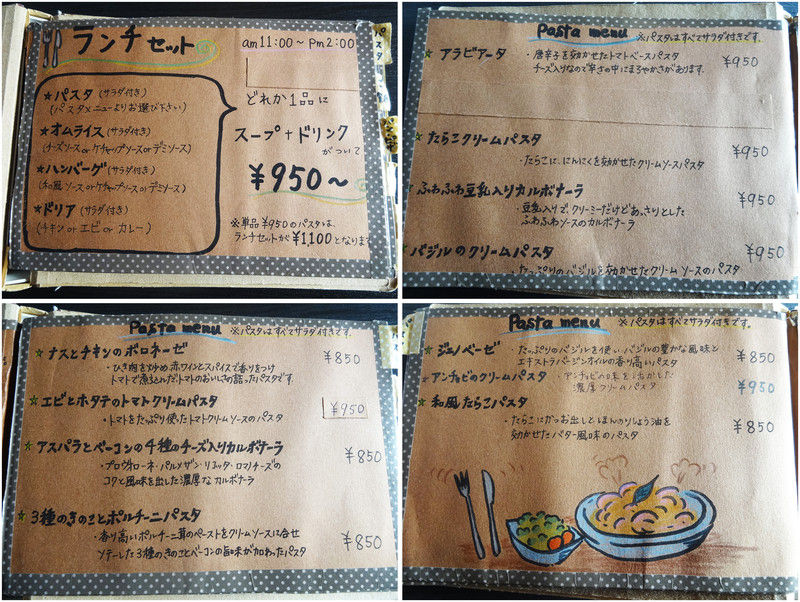 ランチセット
am11:00～pm2:00
★パスタ(サラダ付き)
(パスタメニューよりお選び下さい)
★オムライス(サラダ付き)
(チーズソースorケチャップソースorデミソース)
★ハンバーグ(サラダ付き)
(和風ソースorケチャップソースorデミソース)
★ドリア(サラダ付き)
(チキン or エビ or カレー)
どれか1品に
スープ+ドリンク
がついて
¥950～
※単品¥950のパスタは、
ランチセットが¥1,100となります
Pasta menu ※パスタはすべてサラダ付きです。
★アラビアータ ¥950
・唐辛子を効かせたトマトベースパスタ
チーズ入りなので辛さの中にまろやかさがあります。
★たらこクリームパスタ ¥950
・たらこに、にんにくを効かせたクリームソースパスタ
★ふわふわ豆乳入りカルボナーラ ¥950
・豆乳入りで、クリーミーだけどあっさりとした
ふわふわソースのカルボナーラ
★バジルのクリームパスタ ¥950
・たっぷりのバジルを効かせたクリームソースのパスタ
Pasta menu ※パスタはすべてサラダ付きです。
★ナスとチキンのボロネーゼ ¥850
・ひき肉を炒め赤ワインとスパイスで香りをつけ
トマトで煮込んだトマトのおいしさの詰ったパスタです。
★エビとホタテのトマトクリームパスタ ¥950
・トマトをたっぷり使ったトマトクリームソースのパスタ
★アスパラとベーコンの4種のチーズ入りカルボナーラ ¥850
・プロヴォローネ・パルメザン・リコッタ・ロマノチーズの
コクと風味を出した濃厚なカルボナーラ
★3種のきのことポルチーニパスタ ¥850
・香り高いポルチーニ茸のペーストをクリームソースに合せ
ソテーした3種のきのことベーコンの旨味が加わったパスタ
Pasta menu ※パスタはすべてサラダ付きです。
★ジェノベーゼ ¥850
たっぷりのバジルを使い、バジルの豊かな風味と
エキストラバージンオイルの香り高いパスタ
★アンチョビのクリームパスタ ・アンチョビの味を活かした
濃厚クリームパスタ ¥950
★和風たらこパスタ ¥850
・たらこにかつお出しと、ほんのりしょう油を
効かせたバター風味のパスタ